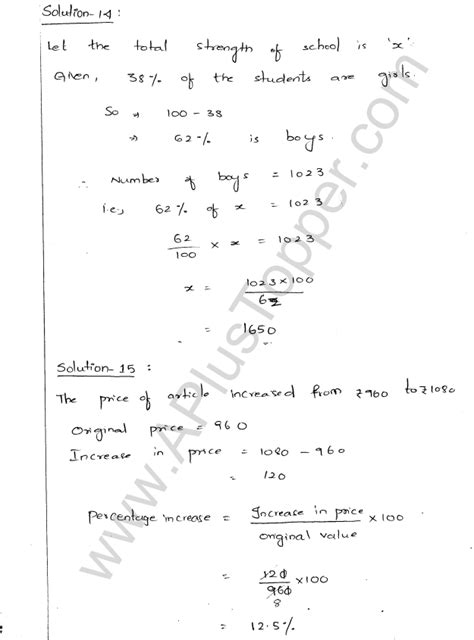 Solution-14 :
Let the total strength of school is 'x'
Given, 38% of the students are girls.
So ⇒ 100 - 38
⇒ 62% is boys.
∴ Number of boys = 1023
i.e., 62% of x = 1023
62/100 × x = 1023
x = 1023×100/62
= 1650
Solution-15 :
The price of article increased from ₹960 to ₹1080
Original price = 960
Increase in price = 1080 - 960
= 120
Percentage increase = Increase in price/orginal value ×100
= 120/960 ×100
8
= 12.5%
www.APlusTopper.com